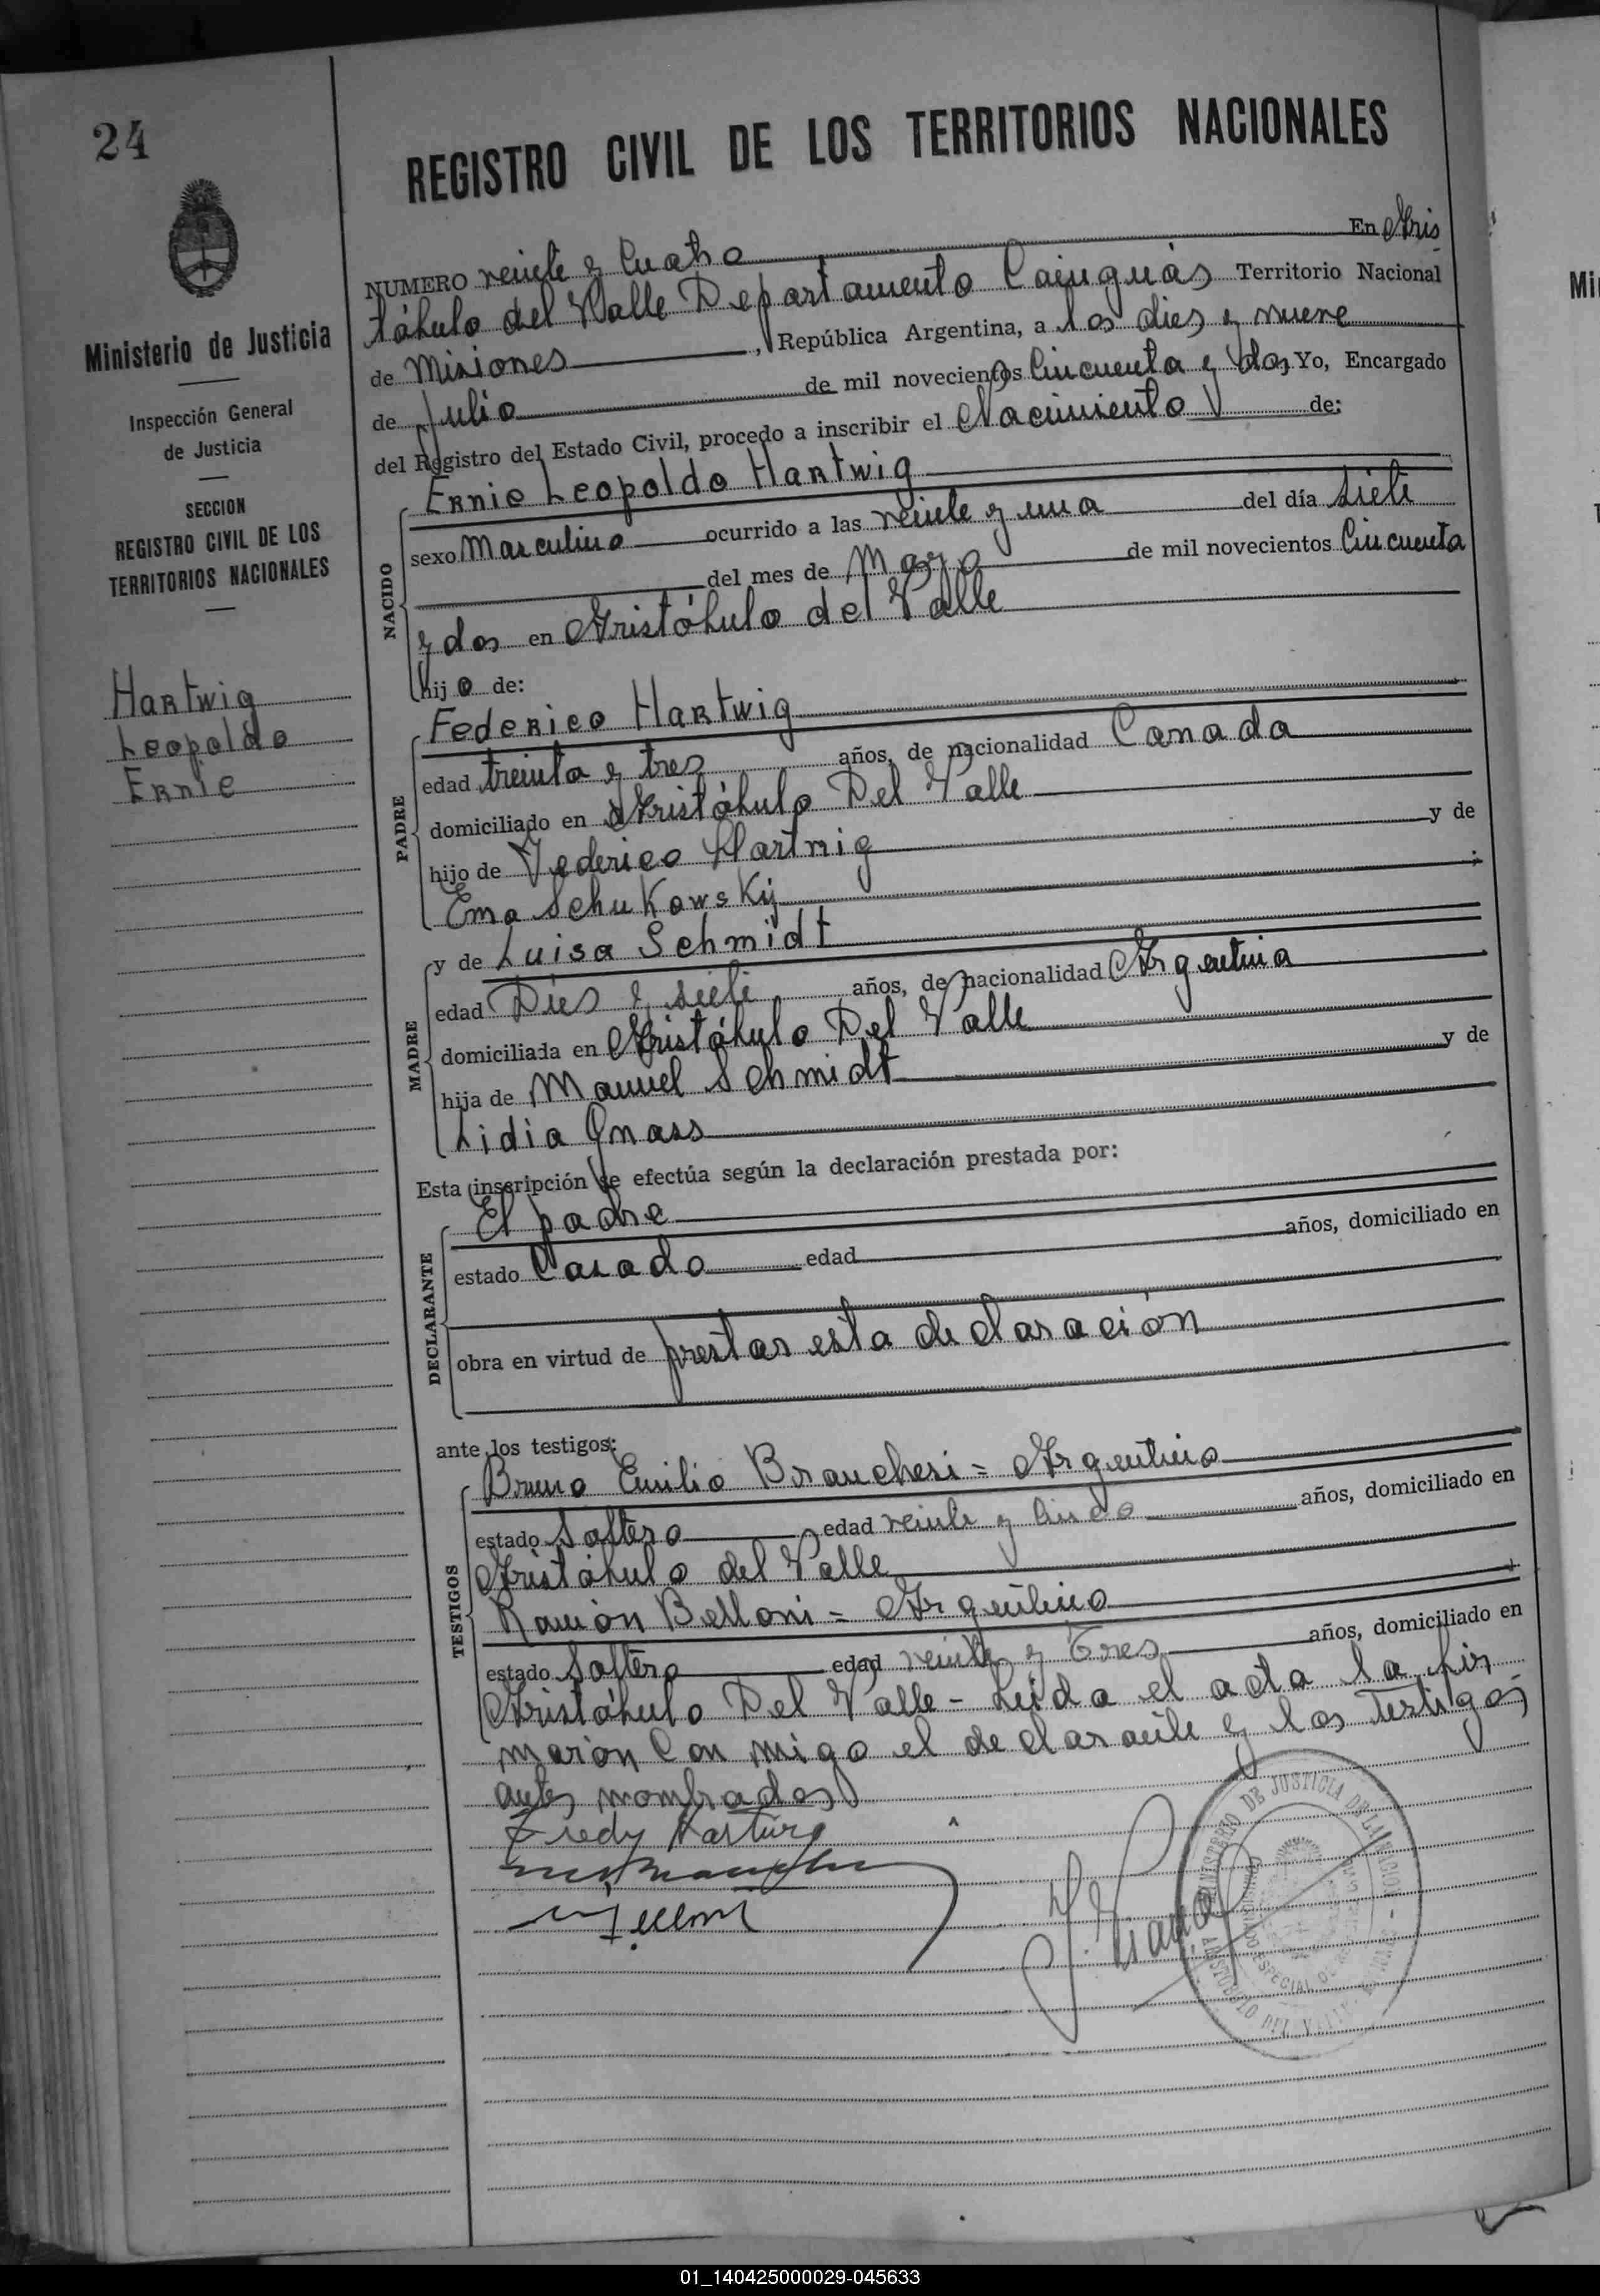 24
Ministerio de Justicia
Inspección General
de Justicia
SECCION
REGISTRO CIVIL DE LOS
TERRITORIOS NACIONALES
Hartwig
Leopoldo
Ernie
REGISTRO CIVIL DE LOS TERRITORIOS NACIONALES
NUMERO veinte y Cuatro En Aris
tóbulo del Valle Departamento Cainguás Territorio Nacional
de Misiones, República Argentina, a los dies y nueve
de Julio de mil novecientos Cincuenta y dos Yo, Encargado
del Registro del Estado Civil, procedo a inscribir el Nacimiento de:
NACIDO
Ernie Leopoldo Hartwig
sexo Masculino ocurrido a las veinte y una del día siete
del mes de Mayo de mil novecientos Cincuenta
y dos en Aristóbulo del Valle
hijo de:
PADRE
Federico Hartwig
edad treinta y tres años, de nacionalidad Canada
domiciliado en Aristóbulo Del Valle
hijo de Federico Hartwig y de
Ema Schukowskij;
MADRE
y de Luisa Schmidt
edad Dies y siete años, de nacionalidad Argentina
domiciliada en Aristóbulo Del Valle
hija de Manuel Schmidt y de
Lidia Gnass
Esta inscripción se efectúa según la declaración prestada por:
DECLARANTE
El padre
estado Casado edad años, domiciliado en
obra en virtud de prestar esta declaración
ante los testigos:
TESTIGOS
Bruno Emilio Brancheri = Argentino
estado Soltero edad veinte y Cinco años, domiciliado en
Aristóbulo del Valle
Ramón Belloni = Argentino
estado Soltero edad veinte y Tres años, domiciliado en
Aristóbulo Del Valle - Leida el acta la fir
maron Con migo el declarante y los Testigos
antes nombrados
Fredy Hartwig
MINISTERIO DE JUSTICIA DE LA NACION
ARISTOBULO DEL VALLE
01_140425000029-045633